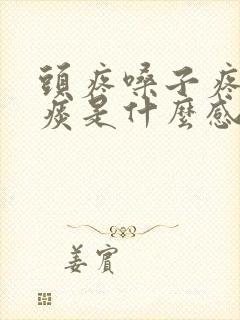 頭疼嗓子疼
痰是什麼感
姜賓